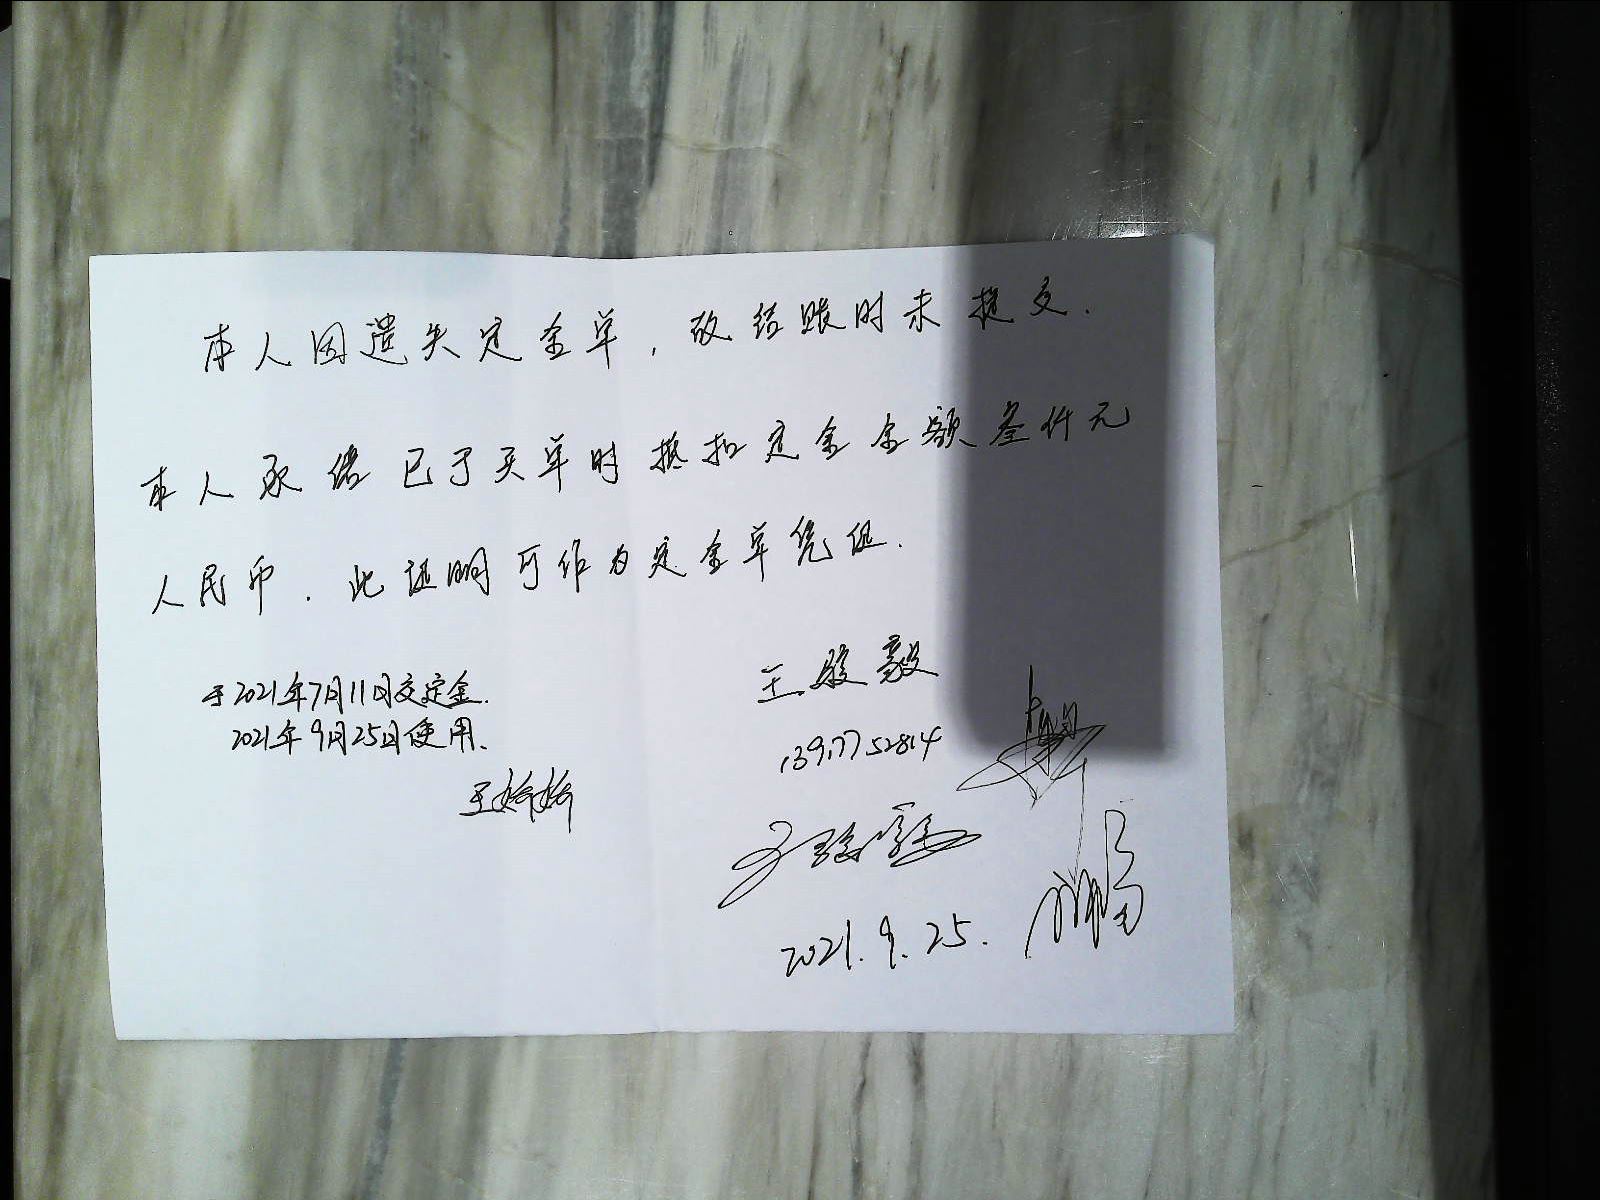 本人因遗失定金单，故结账时未提交.
本人承诺已于买单时抵扣定金金额叁仟元
人民币.此证明可作为定金单凭证.
于2021年7月11日交定金.
2021年9月25日使用.
王骏毅
13917752814
王骏毅
2021.9.25.